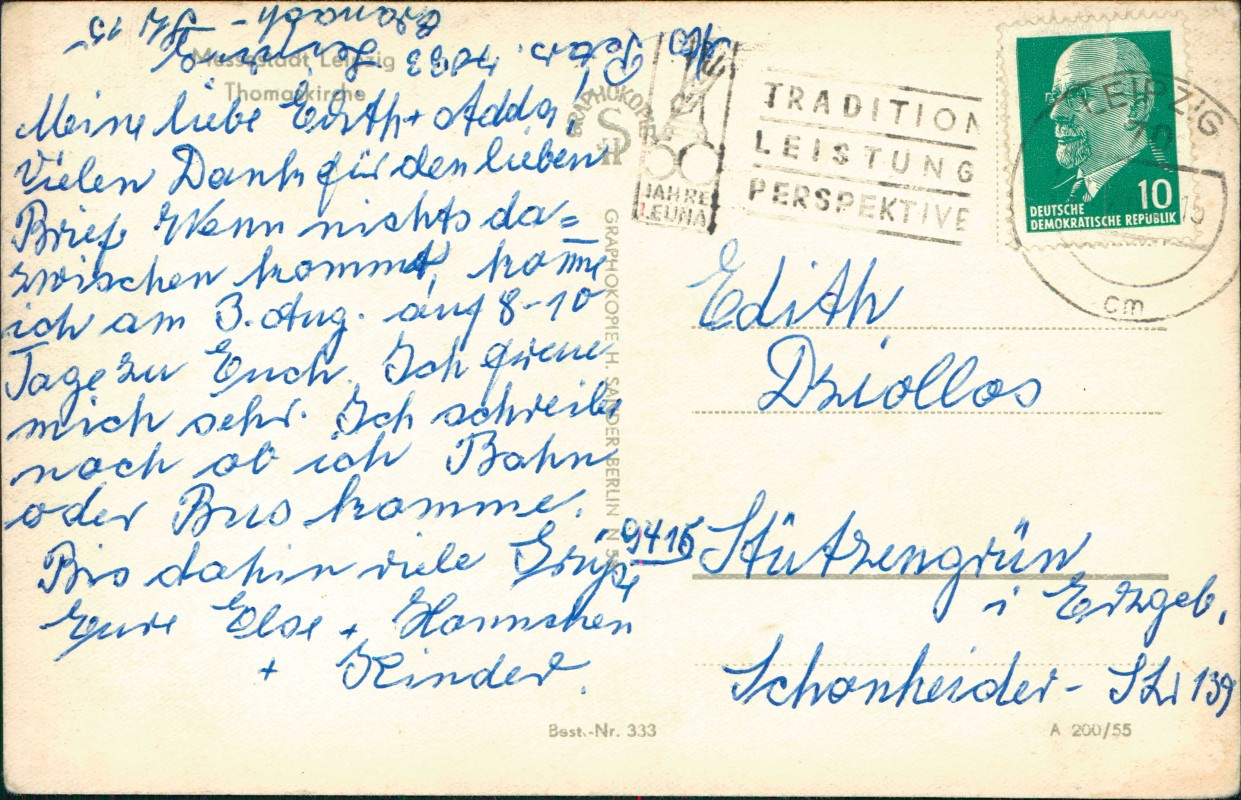 Messestadt Leipzig
Thomaskirche
Meine liebe Edith + Adda,
Vielen Dank für den lieben
Brief. Wenn nichts da=
zwischen kommt, komme
ich am 3. Aug. auf 8-10
Tage zu Euch. Ich freue
mich sehr. Ich schreibe
noch ob ich Bahn
oder Bus komme.
Bis dahin viele Grüße
Eure Else + Hannchen
+ Kinder.
GRAPHOKOPIE
GRAPHOKOPIE H. SANDER BERLIN N
JAHRE
LEUNA
TRADITION
LEISTUNG
PERSPEKTIVE
LEIPZIG
cm
10
DEUTSCHE
DEMOKRATISCHE REPUBLIK
Edith
Dziollos
9415 Stützengrün
i Erzgeb.
Schönheider- Str 139
Best.-Nr. 333
A 200/55